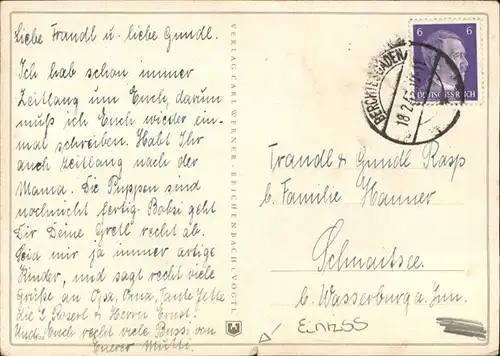 Liebe Frandl u. liebe Gundl.
Ich hab schon immer
Zeitlang um Euch, darum
muß ich Euch wieder ein-
mal schreiben. Habt Ihr
auch Zeitlang nach der
Mama. Die Puppen sind
nochnicht fertig. Bobsi geht
Dir Deine Gretl recht ab.
Seid mir ja immer artige
Kinder, und sagt recht viele
Grüße an Opa, Oma, Tante
die Herrn Ernst!
Und Euch recht viele Bussi von
Euerer Mutti.
VERLAG CARL WERNER, REICHENBACH (VOGTL
6 6
DEUTSCHES REICH
BERCHTESGADEN
18.2
Frandl & Gundl Rasp
b. Familie Hanner
Schnaitsee.
b. Wasserburg a. Inn.